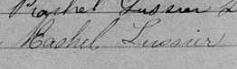 Rachel Lussier
Rashel Lussier